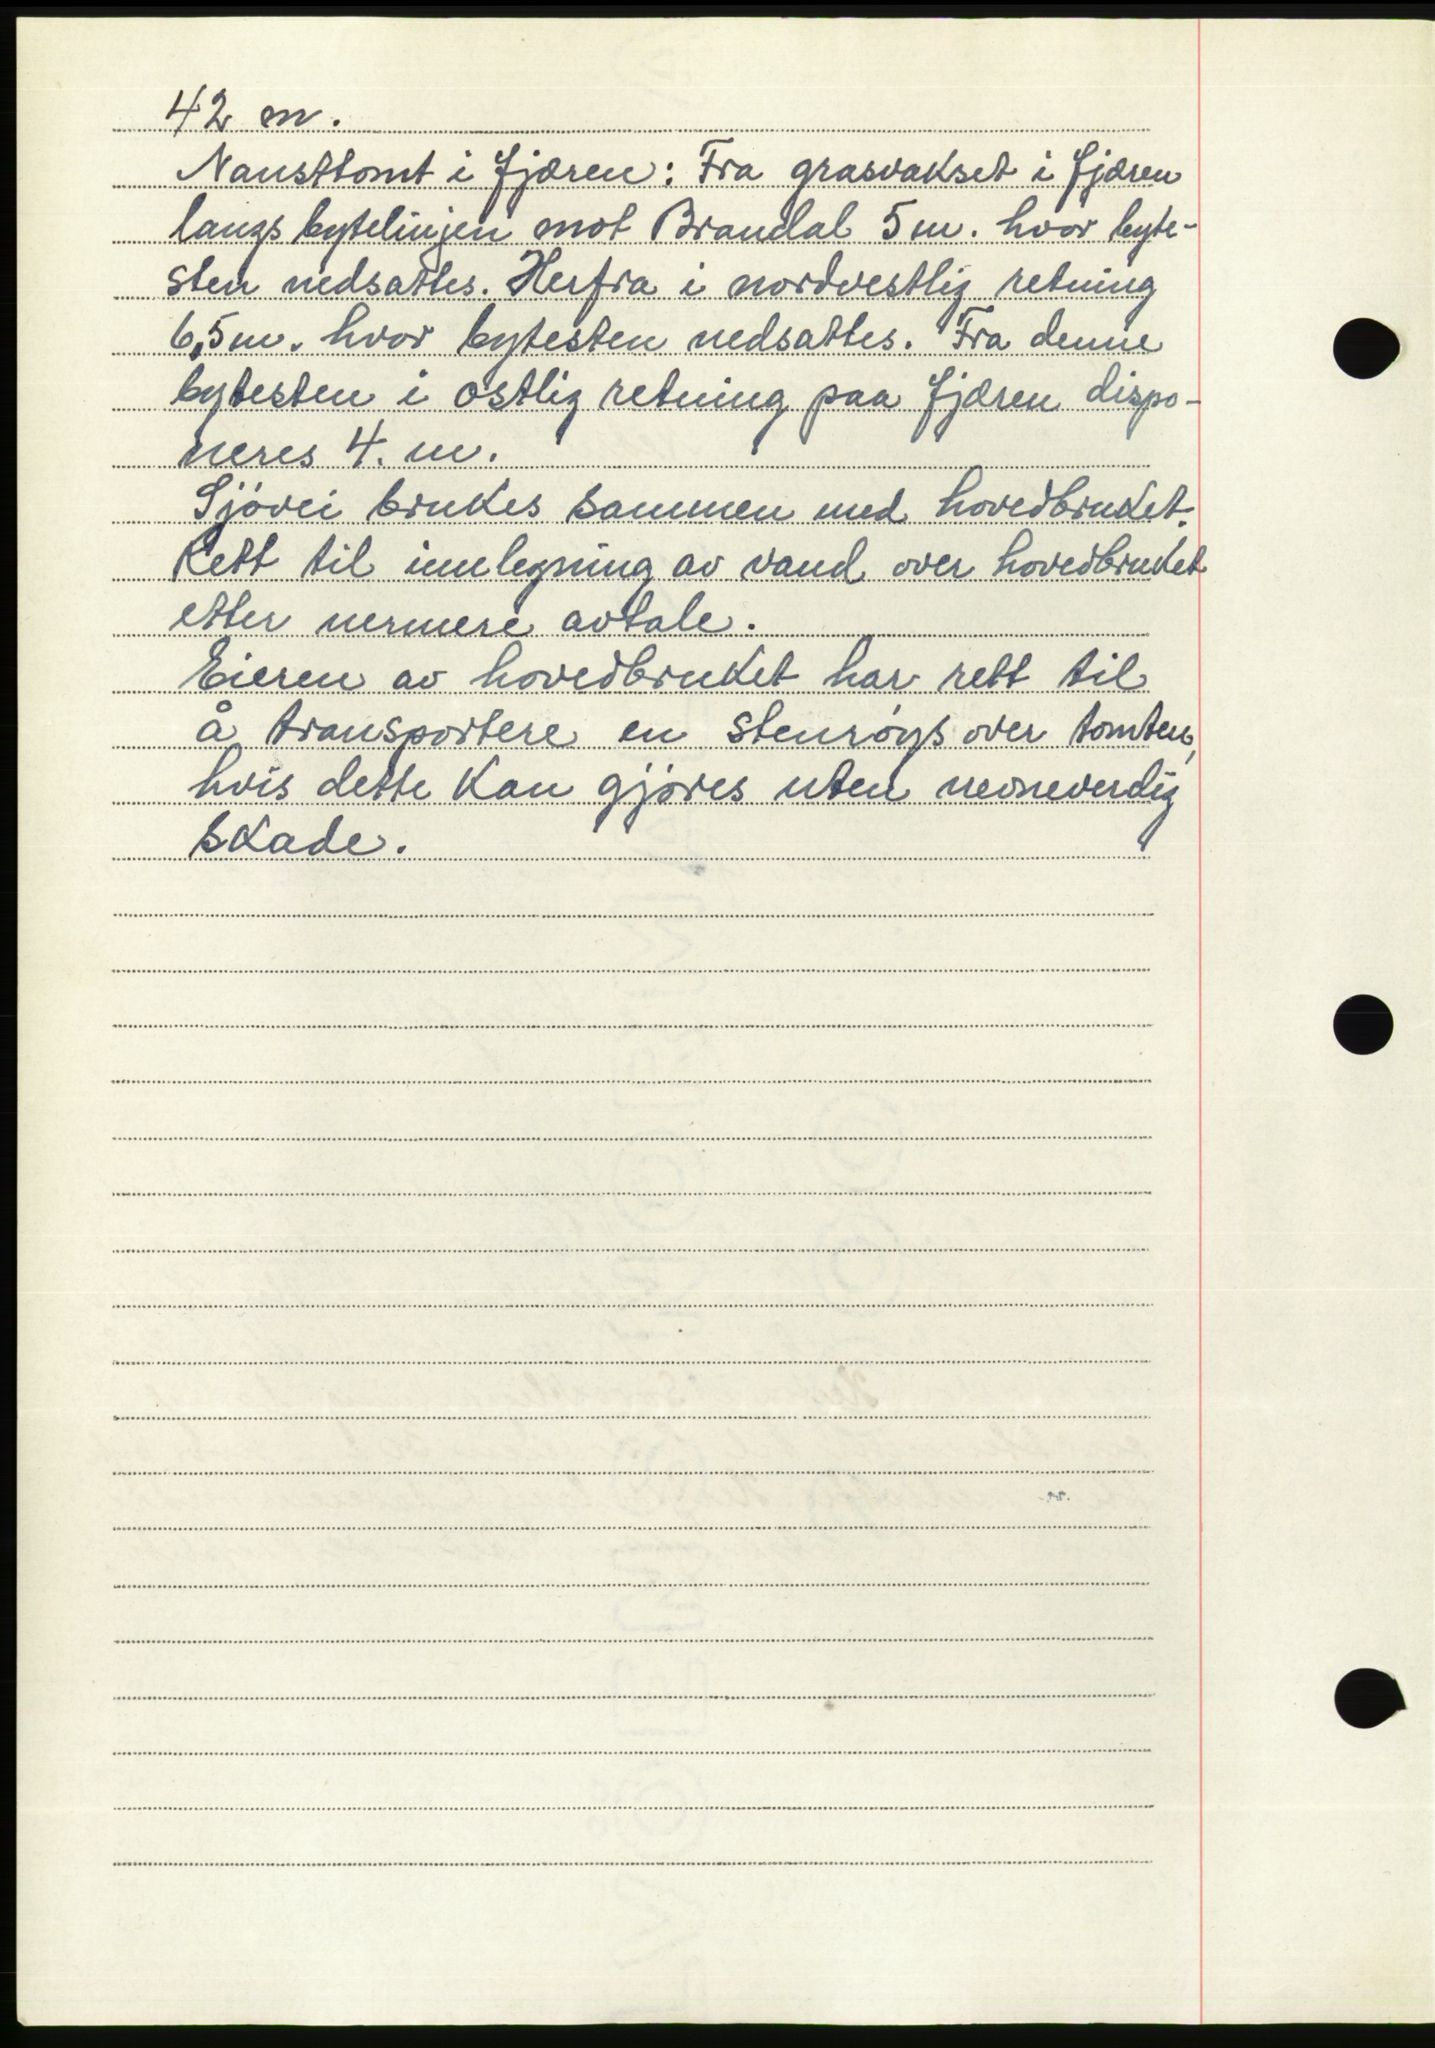 42 m.
Nausttomt i fjæren: Fra grasvakset i fjæren
langs bytelinjen mot Brandal 5 m. hvor byte-
sten nedsattes. Herfra i nordvestlig retning
6,5 m. hvor bytesten nedsattes. Fra denne
bytesten i østlig retning paa fjæren dispo-
neres 4. m.
Sjövei brukes sammen med hovedbruket.
Rett til innlegning av vand over hovedbruket
etter nermere avtale.
Eieren av hovedbruket har rett til
å transportere en stenröys over tomten,
hvis dette kan gjöres uten nevneverdig
skade.